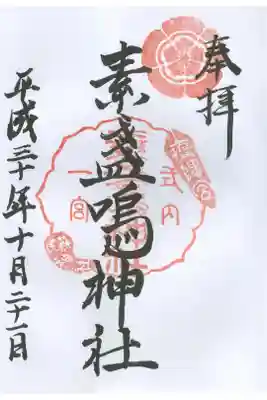 奉拝
素盞嗚神社
式内
一宮
平成三十年十月二十一日